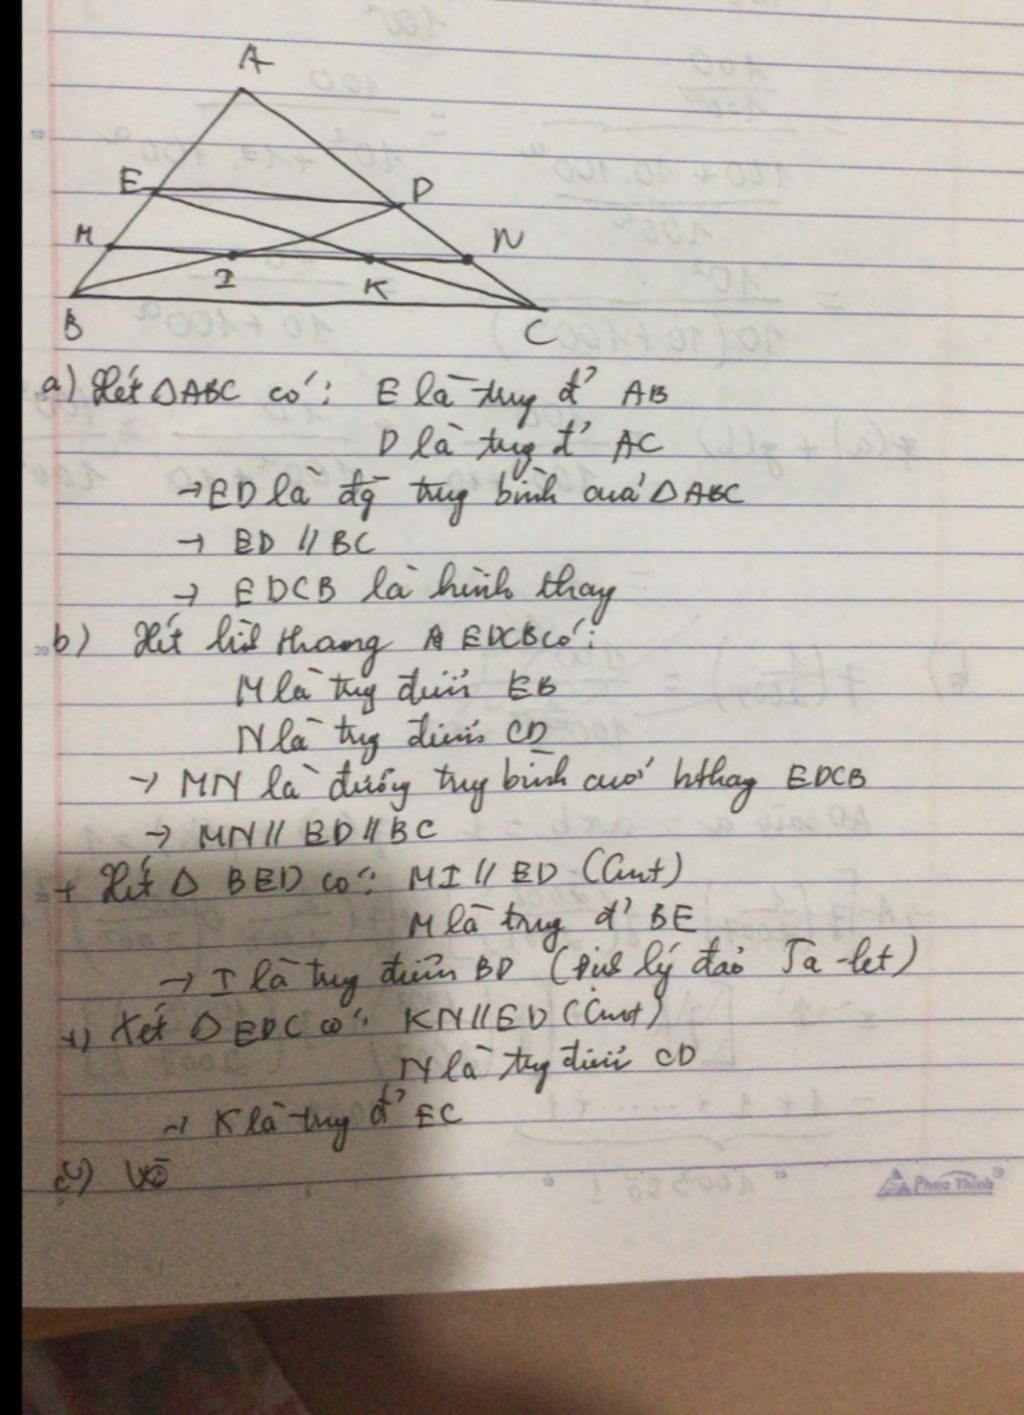 A
E D
M N
I K
B C
a) Xét △ABC có: E là trug đ' AB
D là trug đ' AC
→ ED là đg trug bình của △ABC
→ ED // BC
→ EDCB là hình thag
b) Xét hìh thang EDCB có:
M là trug điểm EB
N là trug điểm CD
→ MN là đường trug bình của hthag EDCB
→ MN // ED // BC
+ Xét △ BED có: MI // ED (Cmt)
M là trug đ' BE
→ I là trug điểm BD (Định lý đảo Ta-let)
+) Xét △ EDC có: KN // ED (Cmt)
N là trug điểm CD
→ K là trug đ' EC
c) Vẽ
Phuc Thinh